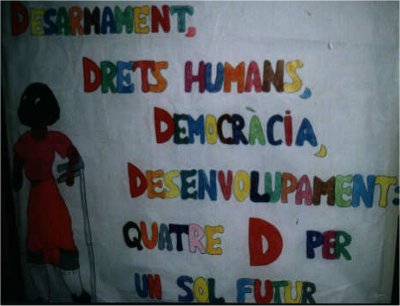 DESARMAMENT,
DRETS HUMANS,
DEMOCRÀCIA,
DESENVOLUPAMENT:
QUATRE D PER
UN SOL FUTUR